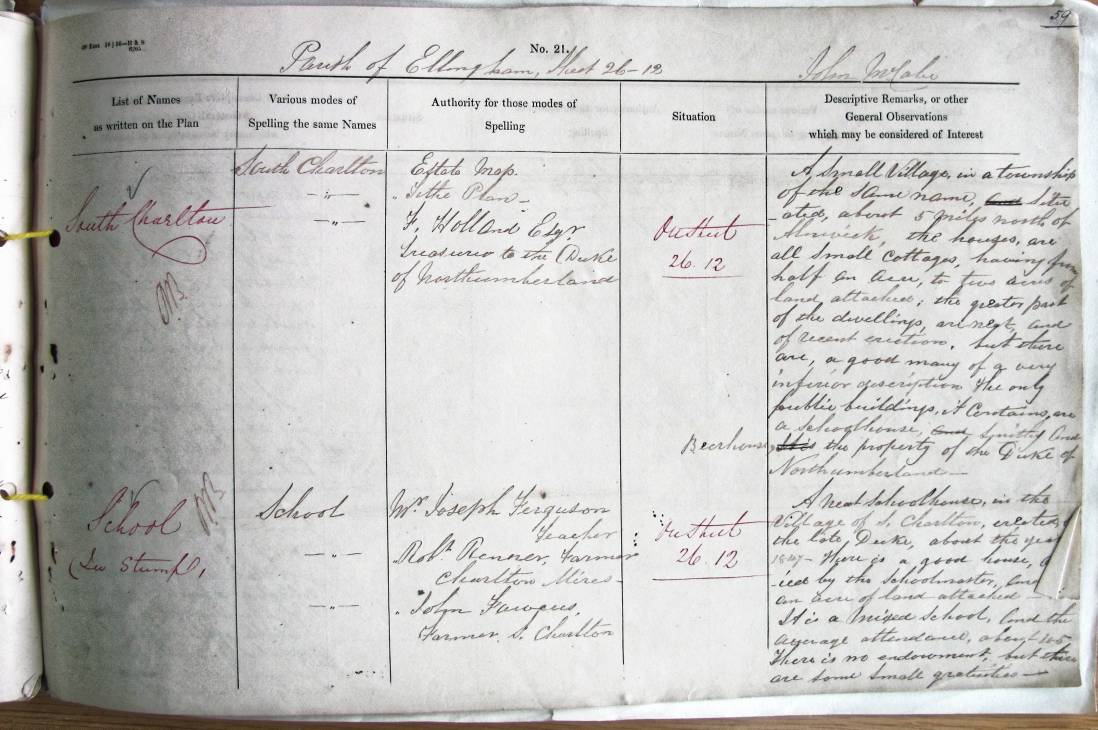 59
No. 21.
Parish of Ellingham, Sheet 26-12
John McCabe
List of Names
as written on the Plan
Various modes of
Spelling the same Names
Authority for those modes of
Spelling
Situation
Descriptive Remarks, or other
General Observations
which may be considered of Interest
South Charlton
South Charlton
Estate Map.
" Tithe Plan -
F. Holland Esqr.
treasurer to the Duke
of Northumberland
On Sheet
26.12
A Small Village, in a township
of the same name, and Situ
-ated, about 5 miles north of
Alnwick, the houses, are
all small Cottages, having from
half an acre, to two acres of
land attached; the greater part
of the dwellings, are neat, and
of recent erection, but there
are, a good many of a very
inferior description The only
public buildings, it Contains, are
a Schoolhouse, and Smithy and
Beerhouse, It is the property of the Duke of
Northumberland -
School
(In Stump),
School
Mr. Joseph Ferguson
Teacher
Robt. Renner, Farmer
Charlton Mires -
" John Fawcus,
Farmer, S. Charlton
On Sheet
26.12
A neat Schoolhouse, in the
Village of S. Charlton, erected
the late, Duke, about the year
1847 - There is a good house,
-ied by the Schoolmaster, and
an acre of land attached -
It is a Mixed School, and the
average attendance, about 105
There is no endowment, but there
are some small gratuities -